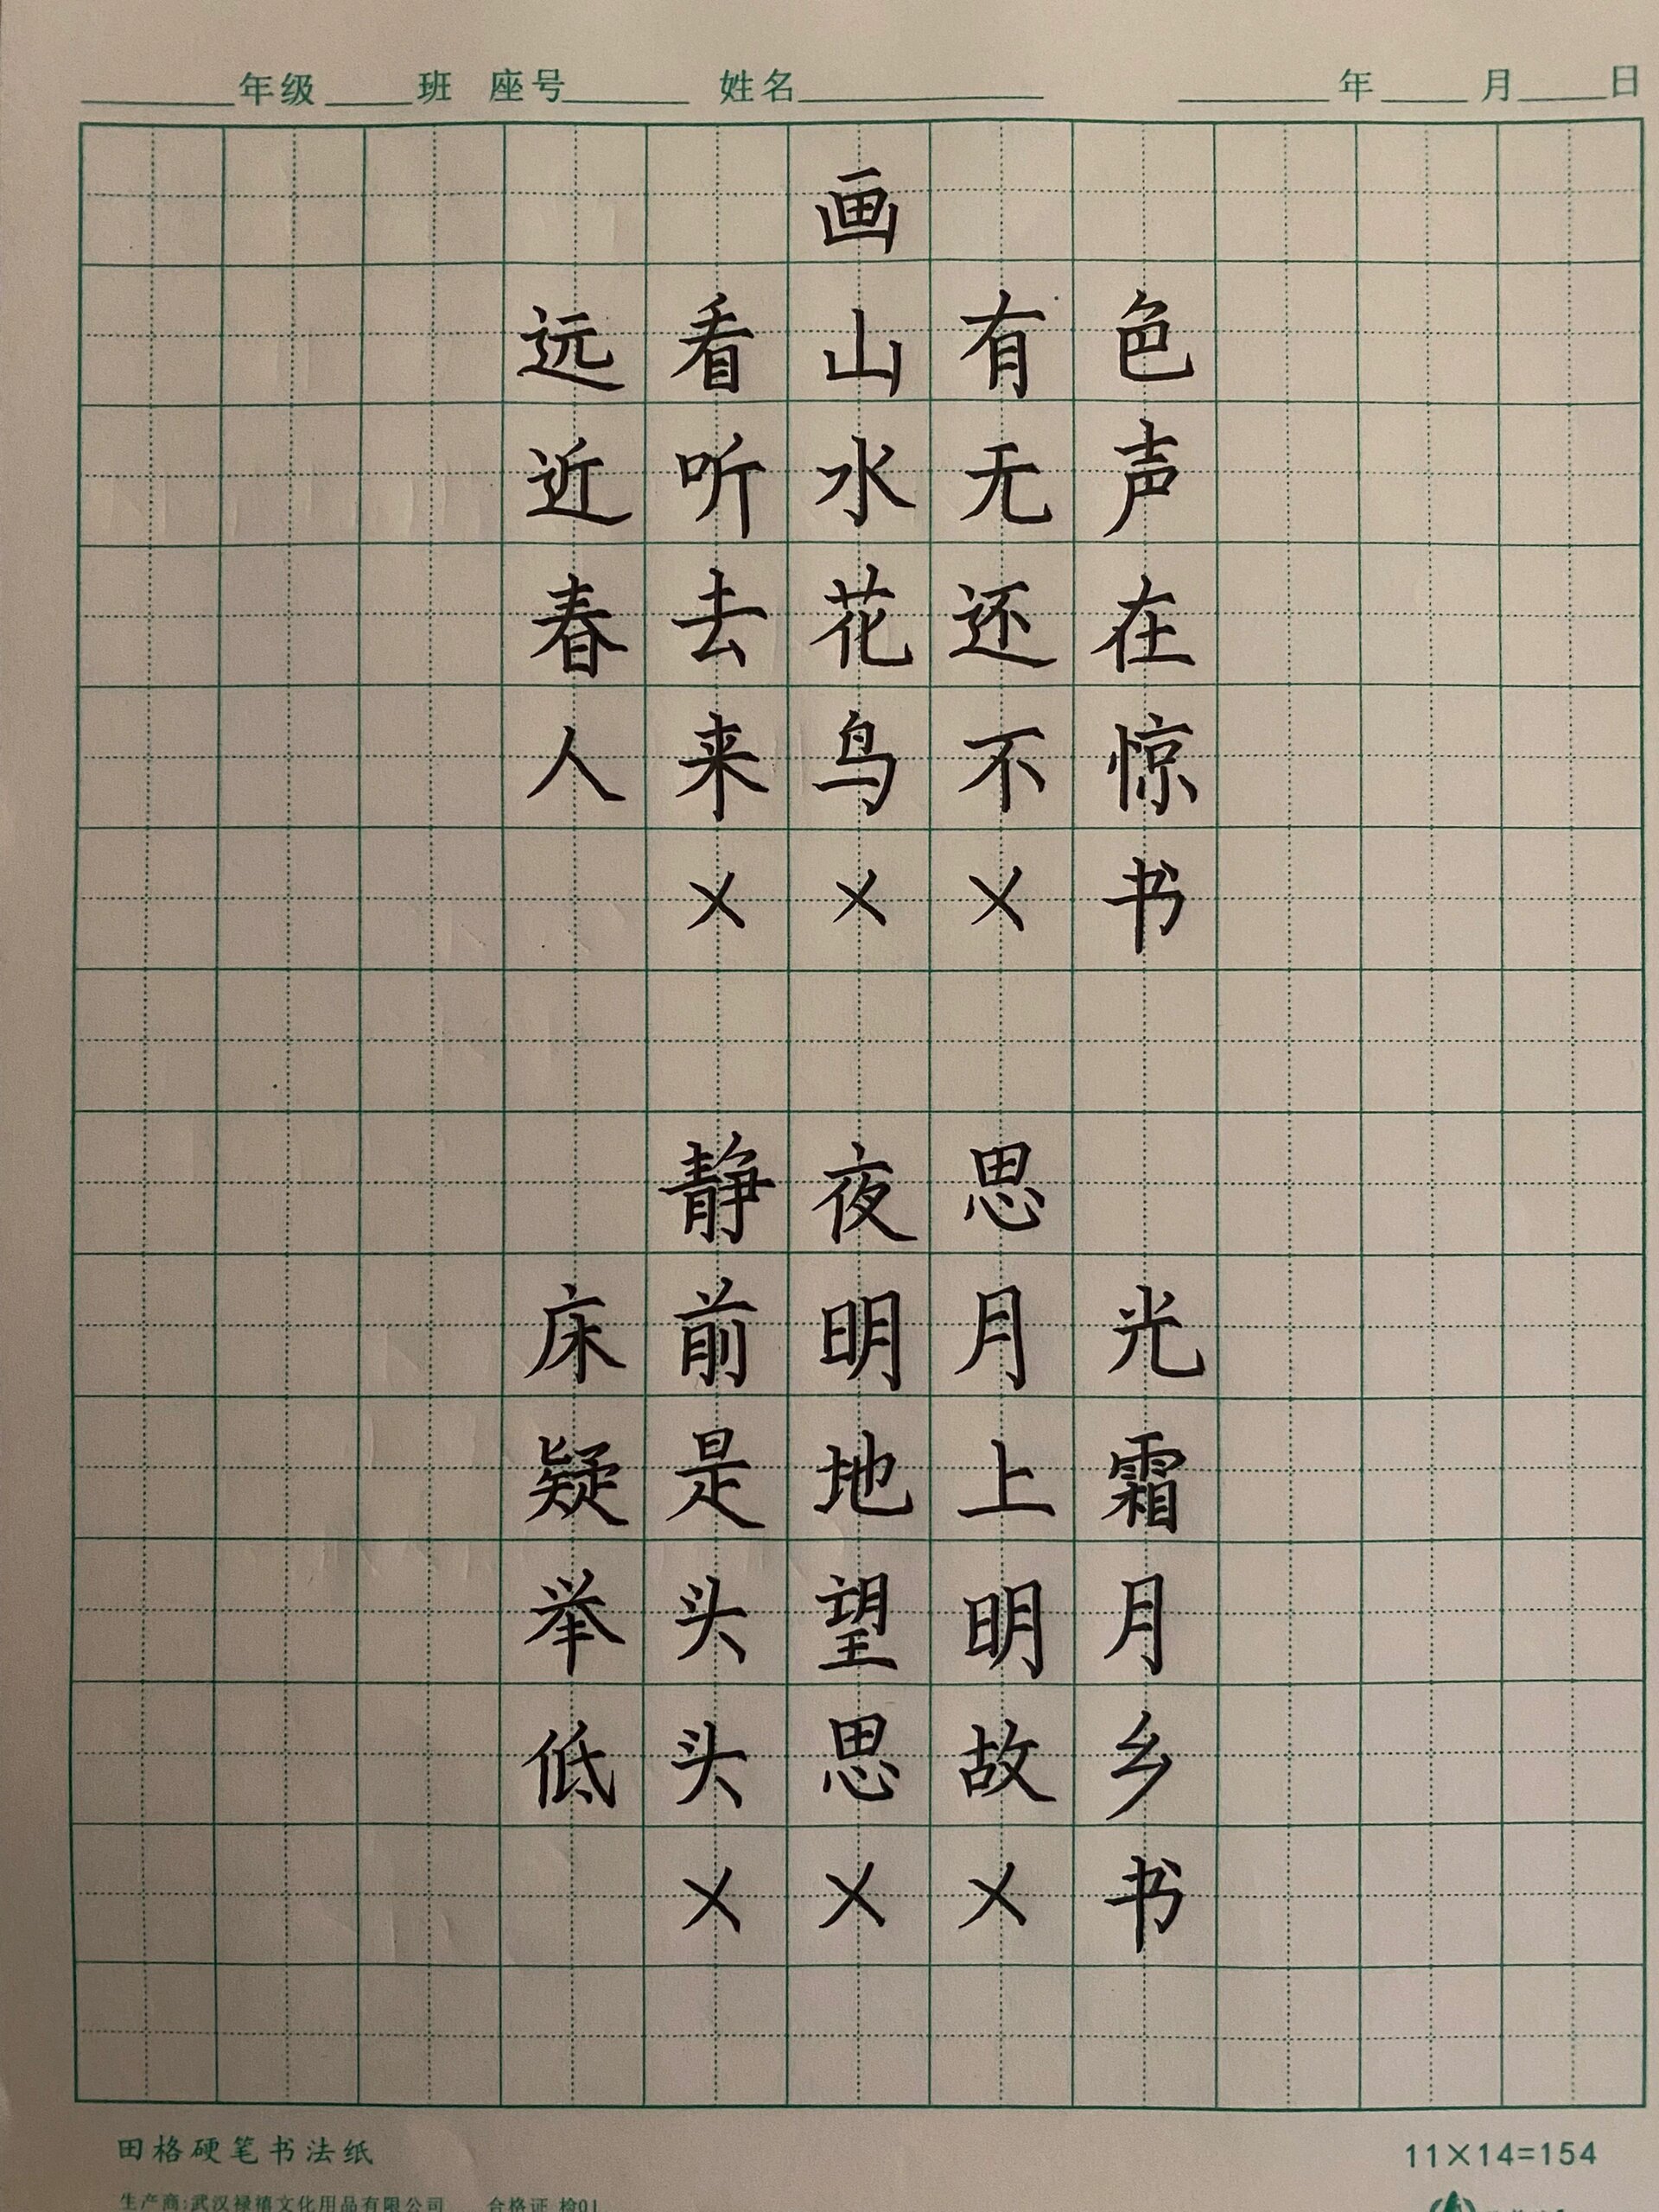 年级 班 座号 姓名 年 月 日
画
远看山有色
近听水无声
春去花还在
人来鸟不惊
×××书
静夜思
床前明月光
疑是地上霜
举头望明月
低头思故乡
×××书
田格硬笔书法纸 11×14=154
生产商:武汉禄禧文化用品有限公司 合格证 检01